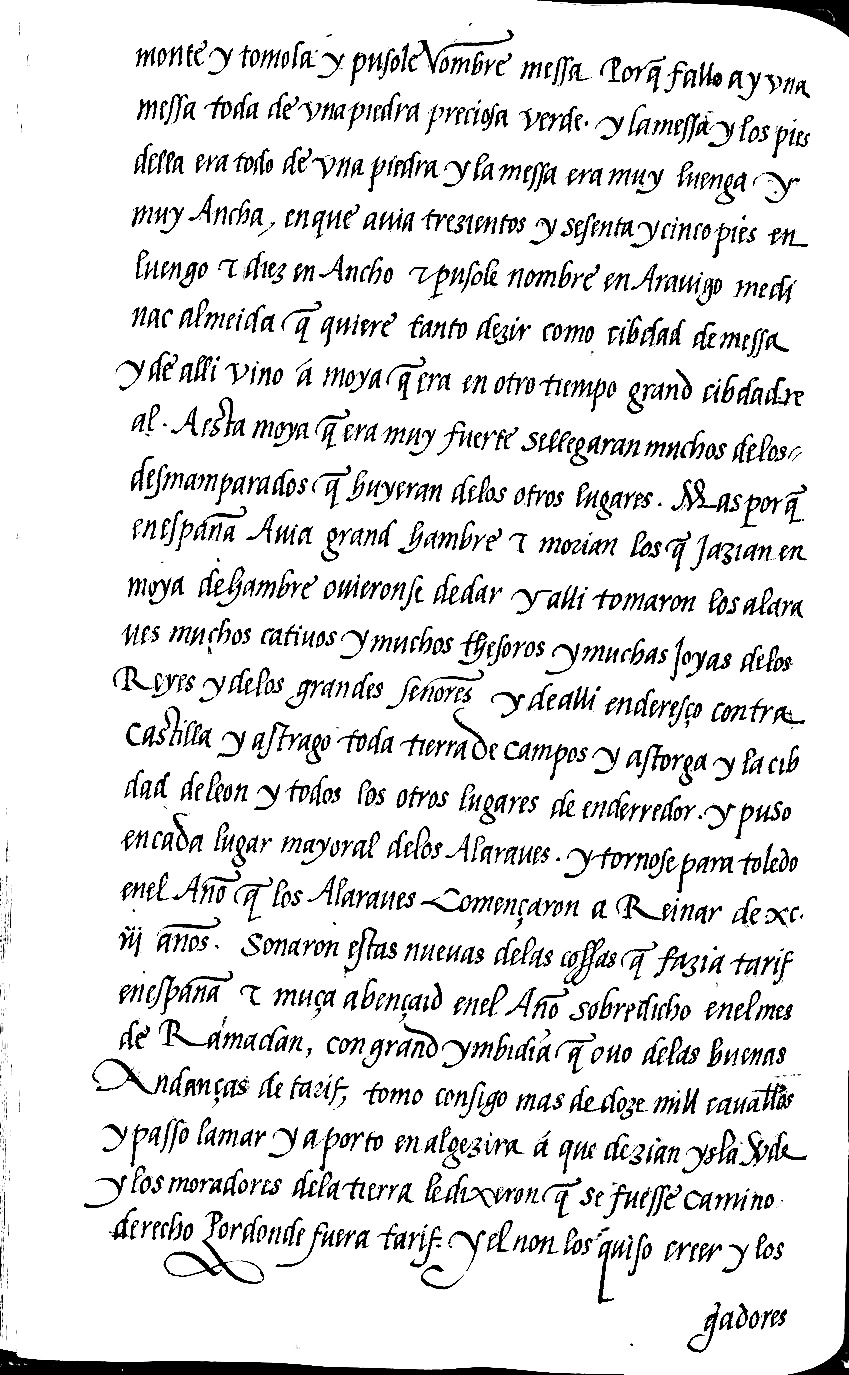 monte y tomola y pusole Nombre messa Porq̃ fallo a y vna
messa toda de vna piedra preciosa verde. y la messa y los pies
della era todo de vna piedra y la messa era muy luenga y
muy Ancha, en que auia trezientos y sesenta y cinco pies en
luengo τ diez en Ancho τ pusole nombre en Arauigo medi
nac almeida q̃ quiere tanto dezir como cibdad de messa
y de alli vino á moya q̃ era en otro tiempo grand cibdad re
al. A esta moya q̃ era muy fuerte se llegaran muchos de los
desmamparados q̃ huyeran de los otros lugares. Mas porq̃
en españa Auia grand hambre τ morian los q̃ Jazian en
moya de hambre ouieronse de dar y alli tomaron los alara
ues muchos catiuos y muchos thesoros y muchas Joyas de los
Reyes y de los grandes señores y de alli enderesço contra
Castilla y astrago toda tierra de campos y astorga y la cib
dad de leon y todos los otros lugares de enderredor. y puso
en cada lugar mayoral de los Alaraues. y tornose para toledo
en el Año q̃ los Alaraues Començaron a Reinar de xc.
iij años. Sonaron estas nueuas de las cossas q̃ fazia tarif
en españa τ muça abençaid en el Año sobredicho en el mes
de Ramadan, con grand ymbidia q̃ ouo de las buenas
Andanças de tarif, tomo consigo mas de doze mill cauallos
y passo la mar y aporto en algezira á que dezian ysla Vde
y los moradores de la tierra le dixeron q̃ se fuesse camino
derecho Por donde fuera tarif. y el non los quiso creer y los
q̃adores